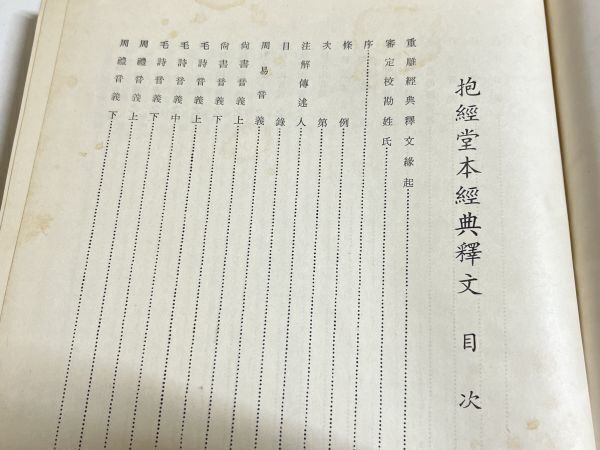 抱經堂本經典釋文 目次
重雕經典釋文緣起
審定校勘姓氏
序
條例
次第
注解傳述人
目錄
周易音義
尙書音義上
尙書音義下
毛詩音義上
毛詩音義中
毛詩音義下
周禮音義上
周禮音義下